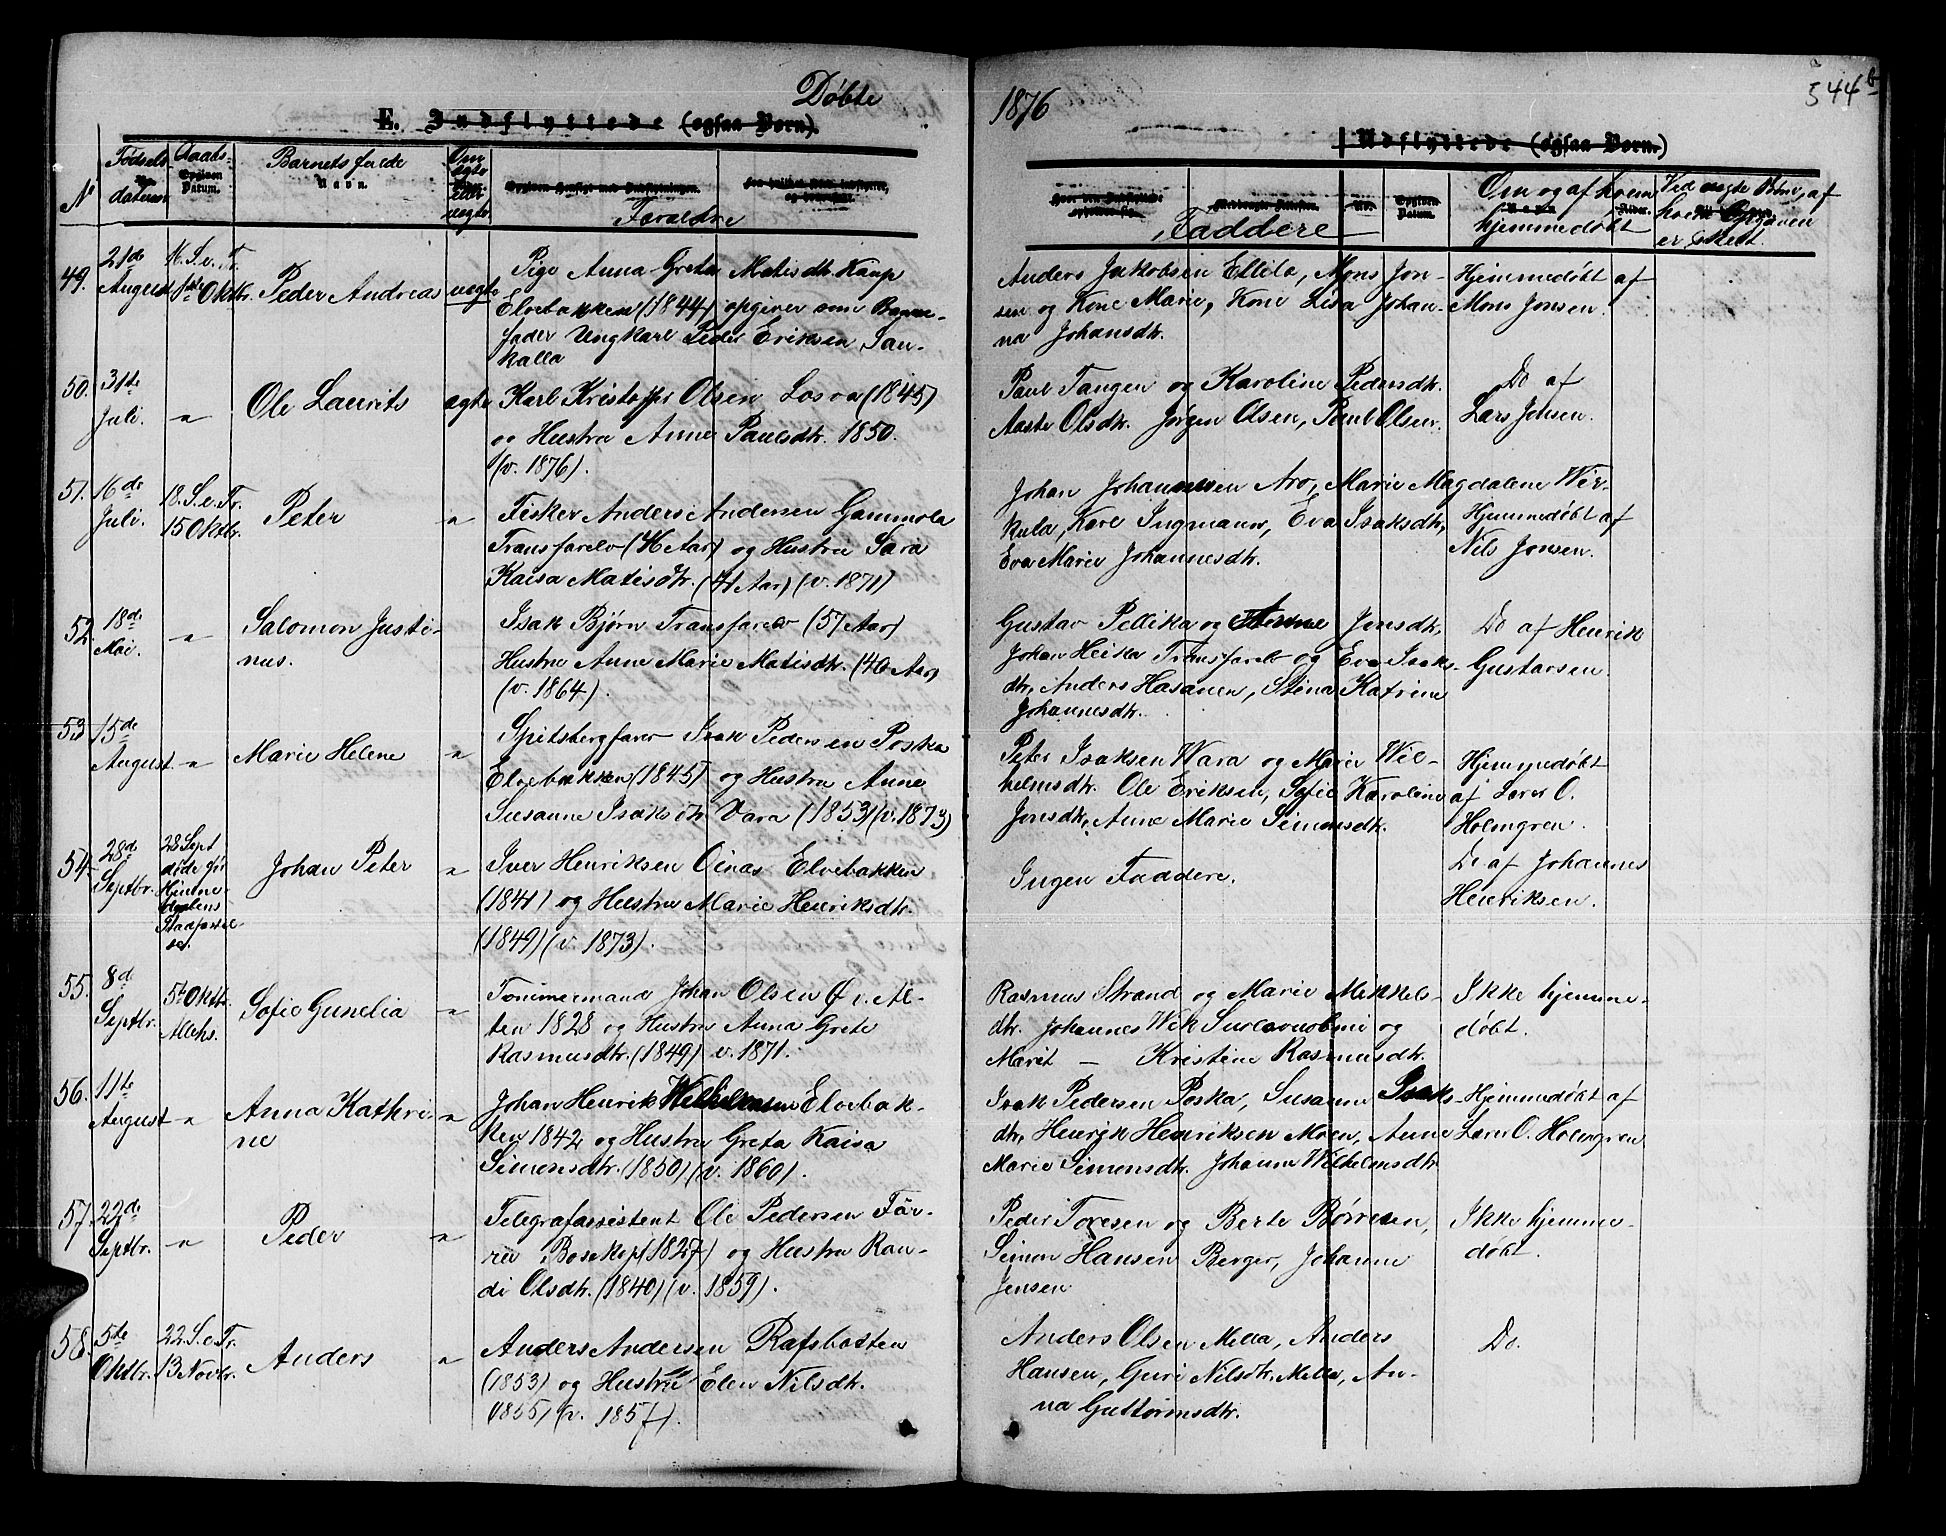 Døbte
1876
344 b
E. Indflyttede (ogsaa Børn).
Udflyttede (ogsaa Børn.)
N Fødsels datum Daabs- Datum. Barnets fulde Navn. Om ægte eller uægte Forældre
Faddere Om og af hvem hjemmedøbt Ved uægte Børn, af hvem Opgaven er skeet.
49. 21de August 16 S. e. Tr. 1ste Oktbr. Peder Andreas uegte
Pige Anna Greta Matisdtr. Kaup
Elvebakken (1844) opgiver som Barne-
fader Ungkarl Peder Eriksen Sau-
kalla
Anders Jakobsen Ellila, Mons Jon-
sen og Kone Marie, Kone Lisa Johan-
na Johansdtr.
Hjemmedøbt af
Mons Jonsen.
50. 31te Juli. " Ole Laurits ægte
Karl Kristoffer Olsen Losva (1845)
og Hustru Anne Paulsdtr. 1850.
(v. 1876).
Paul Tangen og Karoline Pedersdtr.
Aaste Olsdtr. Jørgen Olsen, Paul Olsen.
Do af
Lars Jensen.
51. 16de Juli. 18. S. e. Tr. 15 Oktbr. Peter "
Fisker Anders Andersen Gammola
Transfarelv (46 Aar) og Hustru Sara
Kaisa Matisdtr. (41 Aar) (v. 1871)
Johan Johannesen Aro, Marie Magdalene Wir-
kula, Karl Ingmann, Eva Isaksdtr,
Eva Marie Johannesdtr.
Hjemmedøbt af
Nils Jonsen.
52. 18de Mai. " Salomon Justi-
nus. "
Isak Bjørn Transfarelv (57 Aar)
Hustru Anne Marie Matisdtr. (40 Aar)
(v. 1864).
Gustav Pellika og Anne Jonsdtr,
Johan Heika Transfarelv og Eva Isaks-
dtr, Anders Hasanen, Stina Katrine
Johannesdtr.
Do af Henrik
Gustavsen.
53 15de August " Marie Helene "
Spitsbergfarer Isak Pedersen Poska
Elvebakken (1845) og Hustru Anne
Susanne Isaksdtr. Vara (1853) (v. 1873)
Peter Isaksen Wara og Marie Wil-
helmsdtr. Ole Eriksen, Sofie Karoline
Jonsdtr, Anne Marie Simonsdtr.
Hjemmedøbt
af Lærer O.
Holmgren.
54 28de Septbr. 28 Sept døde før Hjemme- daabens Stadfæstel- se. Johan Peter "
Iver Henriksen Oinas Elvebakken
(1841) og Hustru Marie Henriksdtr.
(1849) (v. 1873).
Ingen Faddere.
Do af Johannes
Henriksen.
55. 8de Septbr. 5t Oktbr. Alchs. Sofie Gunelia "
Tømmermand Johan Olsen Øv. Al-
ten 1828 og Hustru Anna Grete
Rasmusdtr. (1849) v. 1871.
Rasmus Strand og Marie Mikkels-
dtr. Johannes Wik Suolovuobmi og
Marit — Kristine Rasmusdtr.
Ikke hjemme-
døbt.
56. 11te August " Anna Kathri-
ne "
Johan Henrik Wilhelmsen Elvebak-
ken 1842 og Hustru Greta Kaisa
Simonsdtr. (1850) (v. 1860).
Isak Pedersen Poska, Susanne Isaks-
dtr, Henrik Henriksen Moen, Anne
Marie Simonsdtr. Johanne Wilhelmsdtr
Hjemmedøbt af
Lærer O. Holmgren
57. 22de Septbr. " Peder "
Telegrafassistent Ole Pedersen Fær-
ru Bosekop (1827) og Hustru Ran-
di Olsdtr. (1840) (v. 1859).
Peder Toresen og Berte Børresen,
Simon Hansen Berger, Johanne
Jensen
Ikke hjemme-
døbt.
58. 5te Oktbr. 22. S. e. Tr. 13 Novbr. Anders "
Anders Andersen Rafsbotten
(1853) og Hustru Elen Nilsdtr.
(1855) (v. 1857).
Anders Olsen Mella, Anders
Hansen, Guri Nilsdtr. Mella, An-
na Guttormsdtr.
Do.